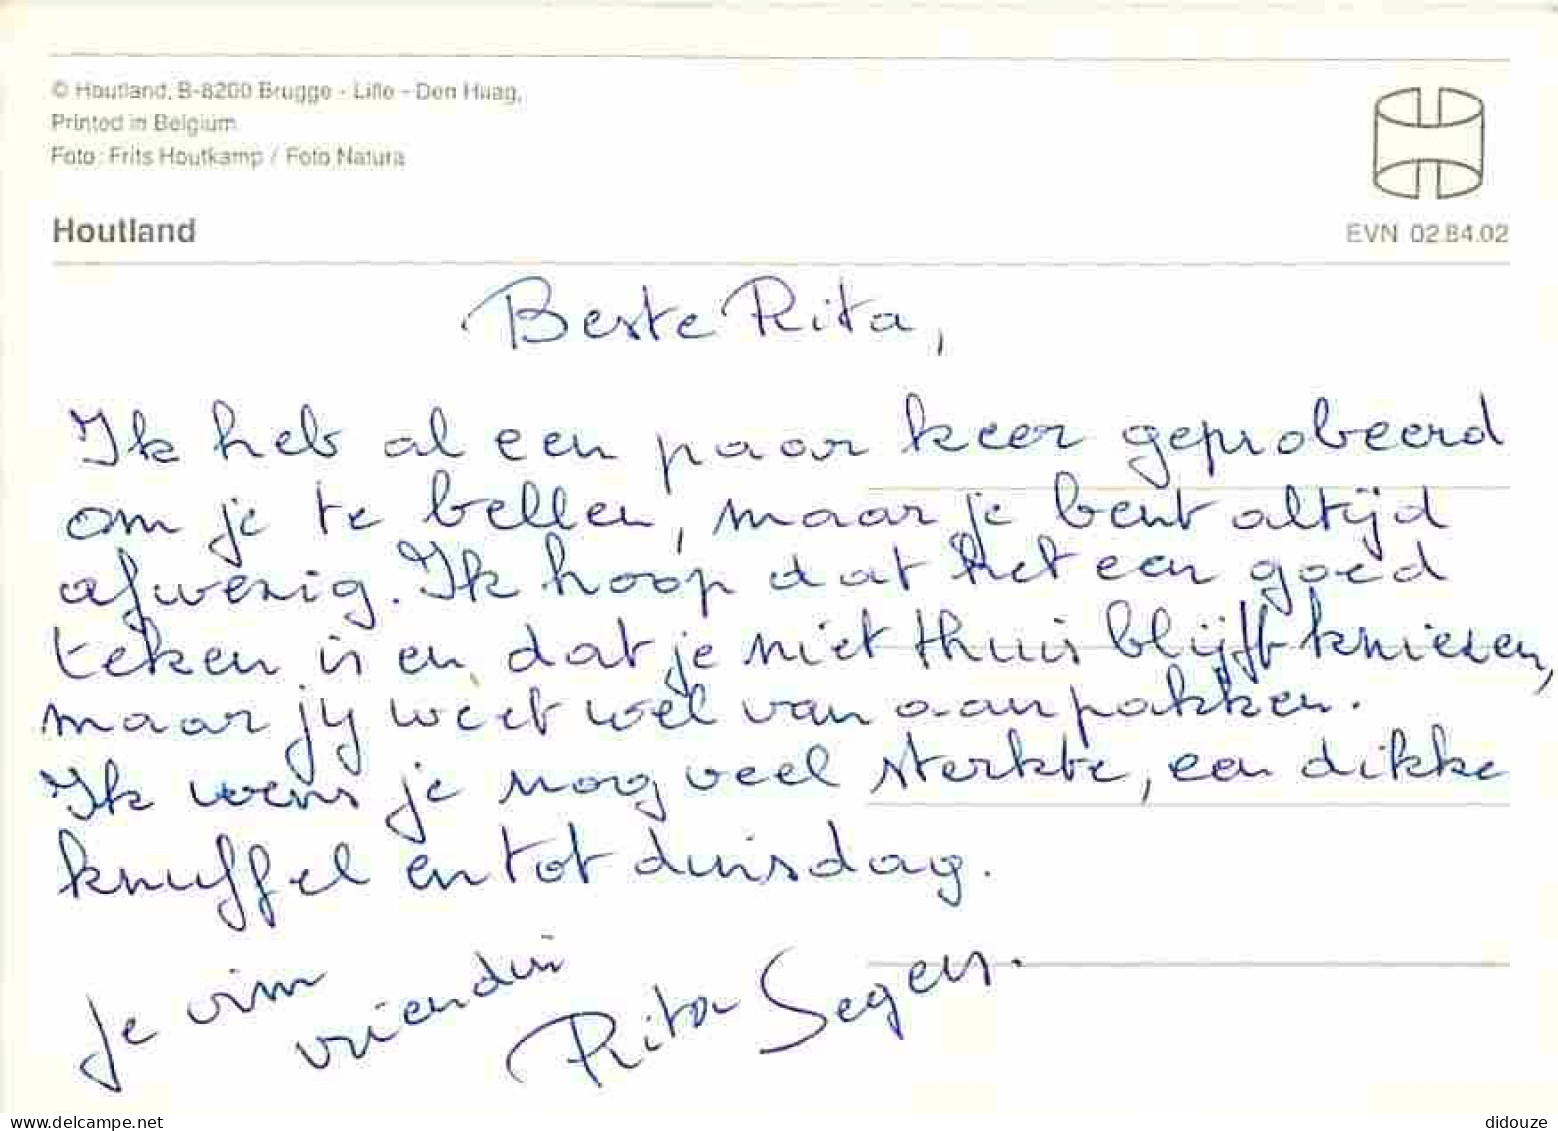 © Houtland, B-8200 Brugge - Lille - Den Haag,
Printed in Belgium
Foto: Frits Houtkamp / Foto Natura
Houtland
EVN 02.84.02
Beste Rita,
Ik heb al een paar keer geprobeerd
om je te bellen, maar je bent altijd
afwezig. Ik hoop dat het een goed
teken is en dat je niet thuis blijft kniezen,
maar jij weet wel van aanpakken.
Ik wens je nog veel sterkte, een dikke
knuffel en tot dinsdag.
Je
vriendin
Rita Segers.
www.delcampe.net
didouze